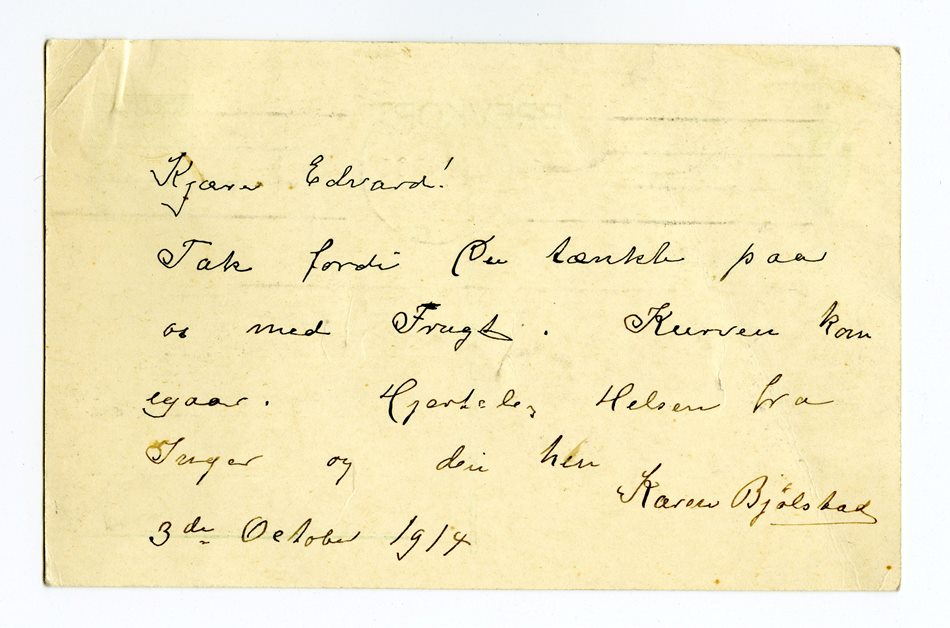 Kjære Edvard!
Tak fordi Du tænkte paa
os med Frugt. Kurven kom
igaar. Hjertelig Helsen fra
Inger og din hen
Karen Bjølstad
3de October 1914